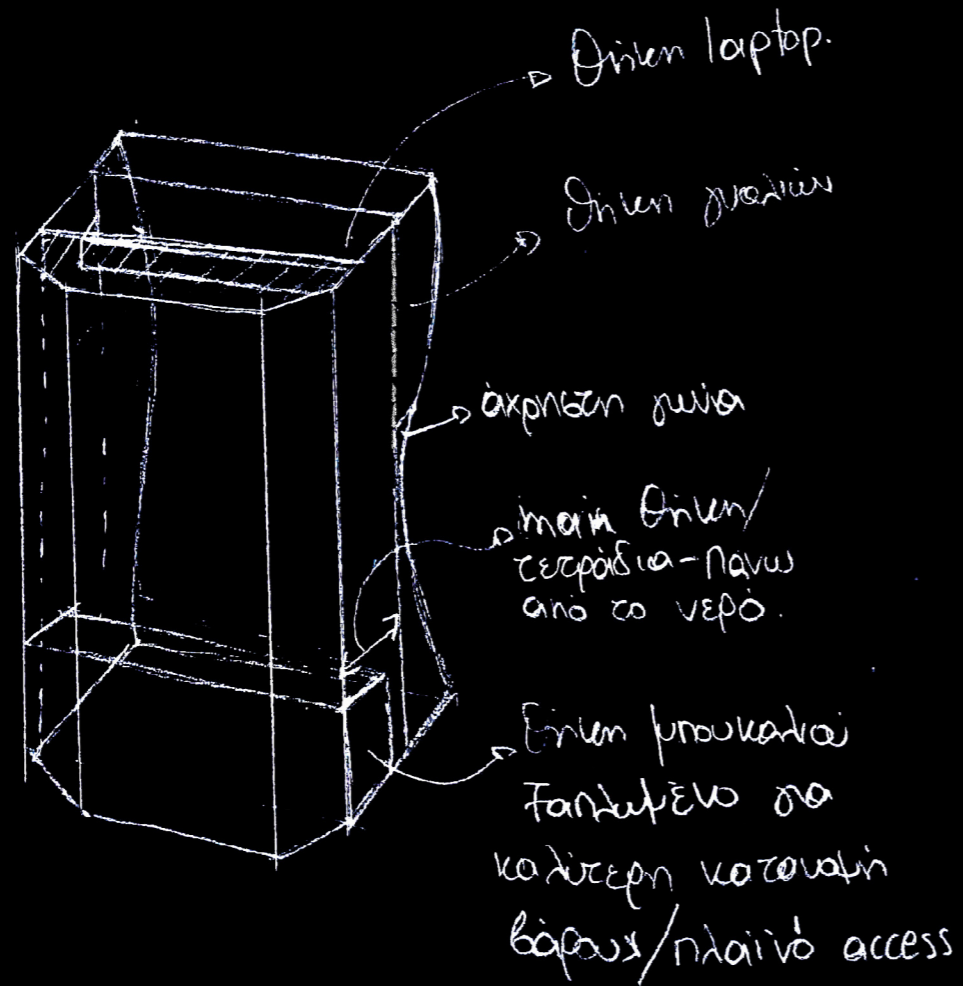 Θήκη laptop.
Θήκη γυαλιών
άχρηστη γωνία
main θήκη/
τετράδια - πάνω
από το νερό.
Θήκη μπουκαλιού
ξαπλωμένο για
καλύτερη κατανομή
βάρους/πλαϊνό access